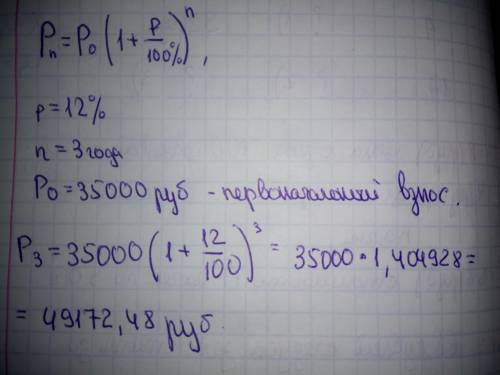 Pₙ = P₀ (1 + p/100%)ⁿ,
p = 12%
n = 3 года
P₀ = 35000 руб - первоначальный взнос.
P₃ = 35000 (1 + 12/100)³ = 35000 · 1,404928 =
= 49172,48 руб.